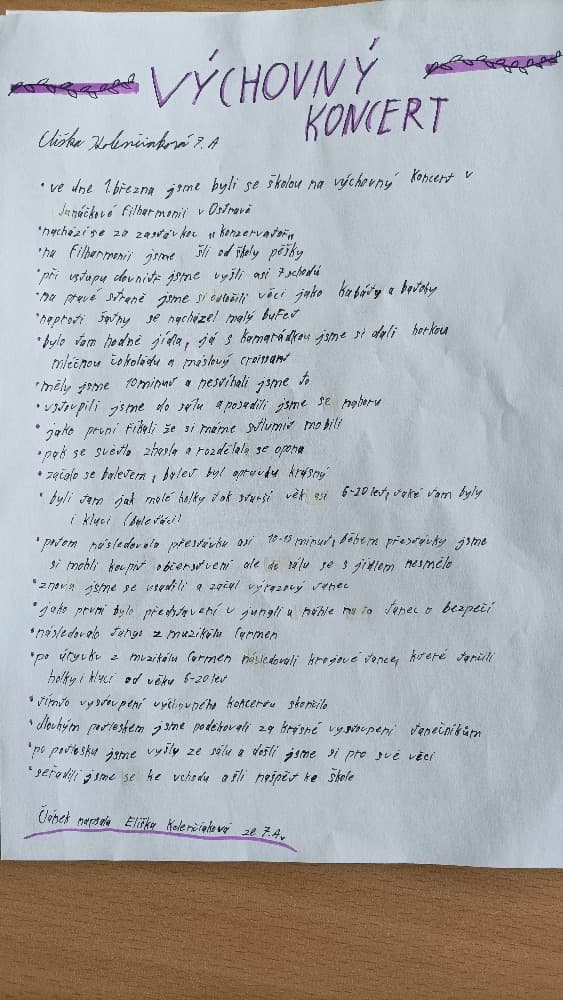 VÝCHOVNÝ
KONCERT
Eliška Kolenčiaková 7.A
• ve dne 1. března jsme byli se školou na výchovný koncert v
Janáčkově filharmonii v Ostravě
• nachází se za zastávkou „Konzervatoř"
• na Filharmonii jsme šli od školy pěšky
• při vstupu dovnitř jsme vyšli asi 7 schodů
• na pravé straně jsme si odložili věci jako kabáty a batohy
• naproti šatny se nacházel malý bufet
• bylo tam hodně jídla, já s kamarádkou jsme si dali horkou
mléčnou čokoládu a máslový croissant
• měly jsme 10 minut a nestíhali jsme to
• vstoupili jsme do sálu a posadili jsme se nahoru
• jako první říkali že si máme ztlumit mobili
• pak se světla zhasla a rozdělala se opona
• začalo se baletem, balet byl opravdu krásný
• byli tam jak malé holky tak starší věk asi 6-20 let, také tam byly
i kluci (baleťáci)
• potom následovala přestávka asi 10-15 minut, během přestávky jsme
si mohli koupit občerstvení ale do sálu se s jídlem nesmělo
• znova jsme se usadili a začal výrazový tanec
• jako první bylo představení v jungli u náhle na to tanec o bezpečí
• následovalo tango z muzikálu Carmen
• po úryvku z muzikálu Carmen následovali krojové tance, které tančili
holky i kluci od věku 6-20 let
• tímto vystoupení výchovného koncertu skončilo
• dlouhým potleskem jsme poděkovali za krásné vystoupení tanečníkům
• po potlesku jsme vyšly ze sálu a došli jsme si pro své věci
• seřadili jsme se ke vchodu a šli nazpět ke škole
Článek napsala Eliška Kolenčiaková ze 7.A.